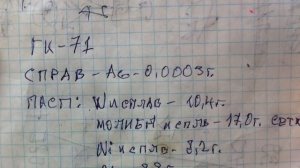 ГК-71
СПРАВ - AG - 0,0003г.
ПАСП: W И СПЛАВ - 10,4г.
МОЛИБД И СПЛ - 17,0г.
Ni И СПЛАВ - 3,2г.